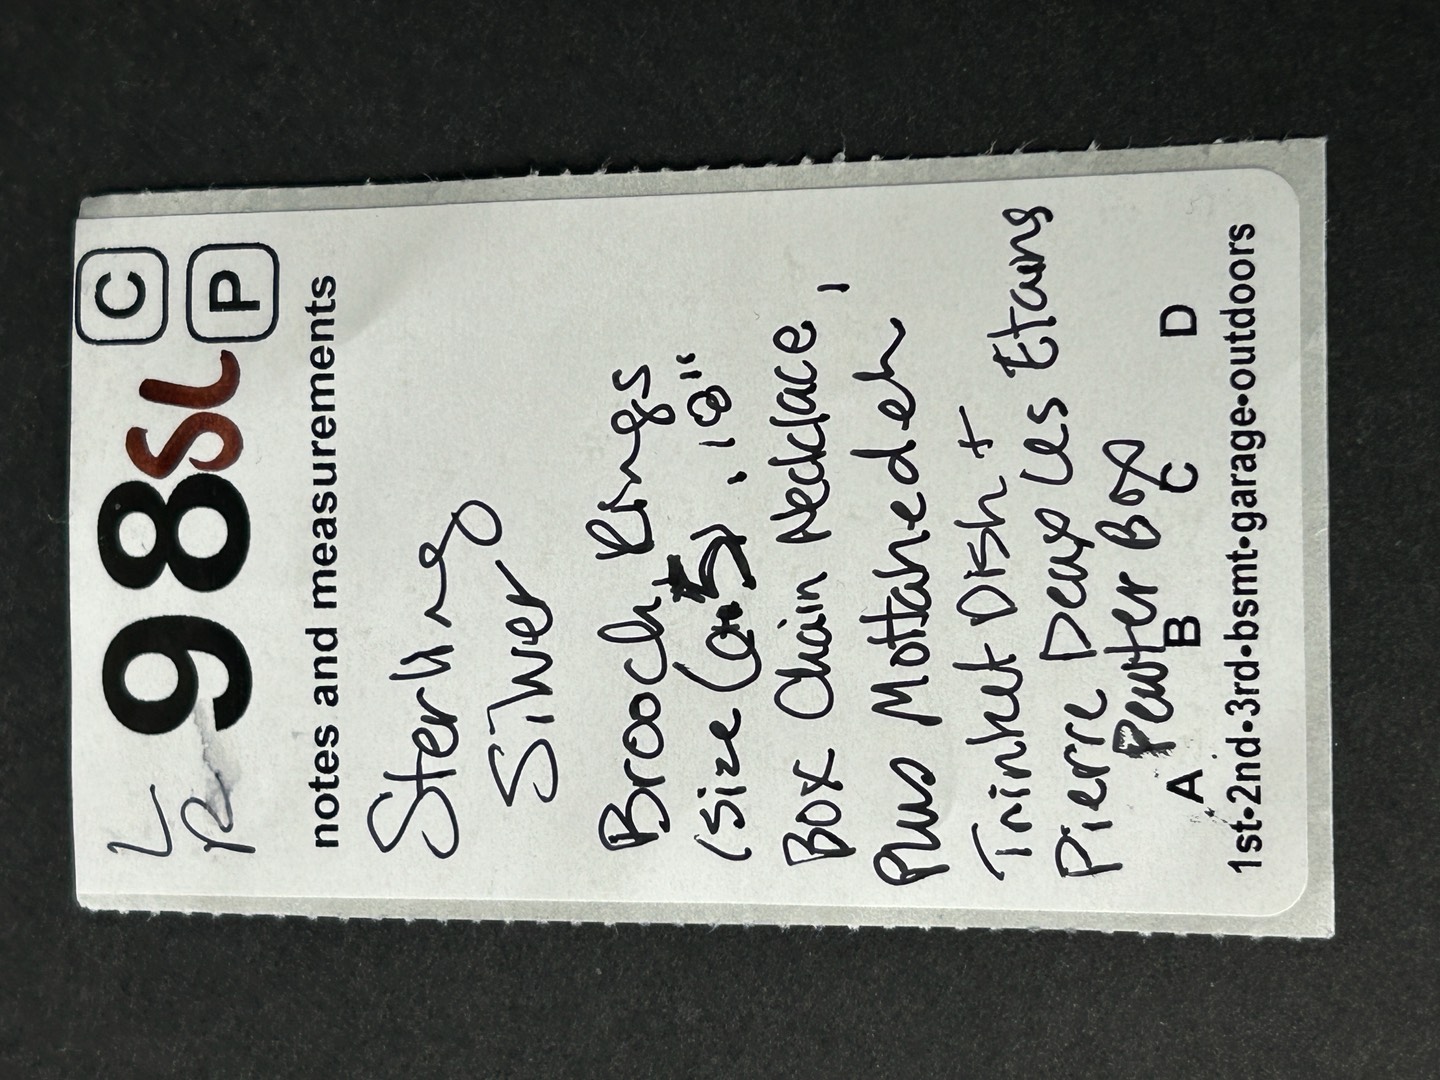 L
R
98SL
C
P
notes and measurements
Sterling
Silver
Brooch Rings
(size 5), 18"
Box Chain Necklace,
Plus Mottahedeh
Trinket Dish +
Pierre Deux Les Etains
Pewter Box
A B C D
1st•2nd•3rd•bsmt•garage•outdoors